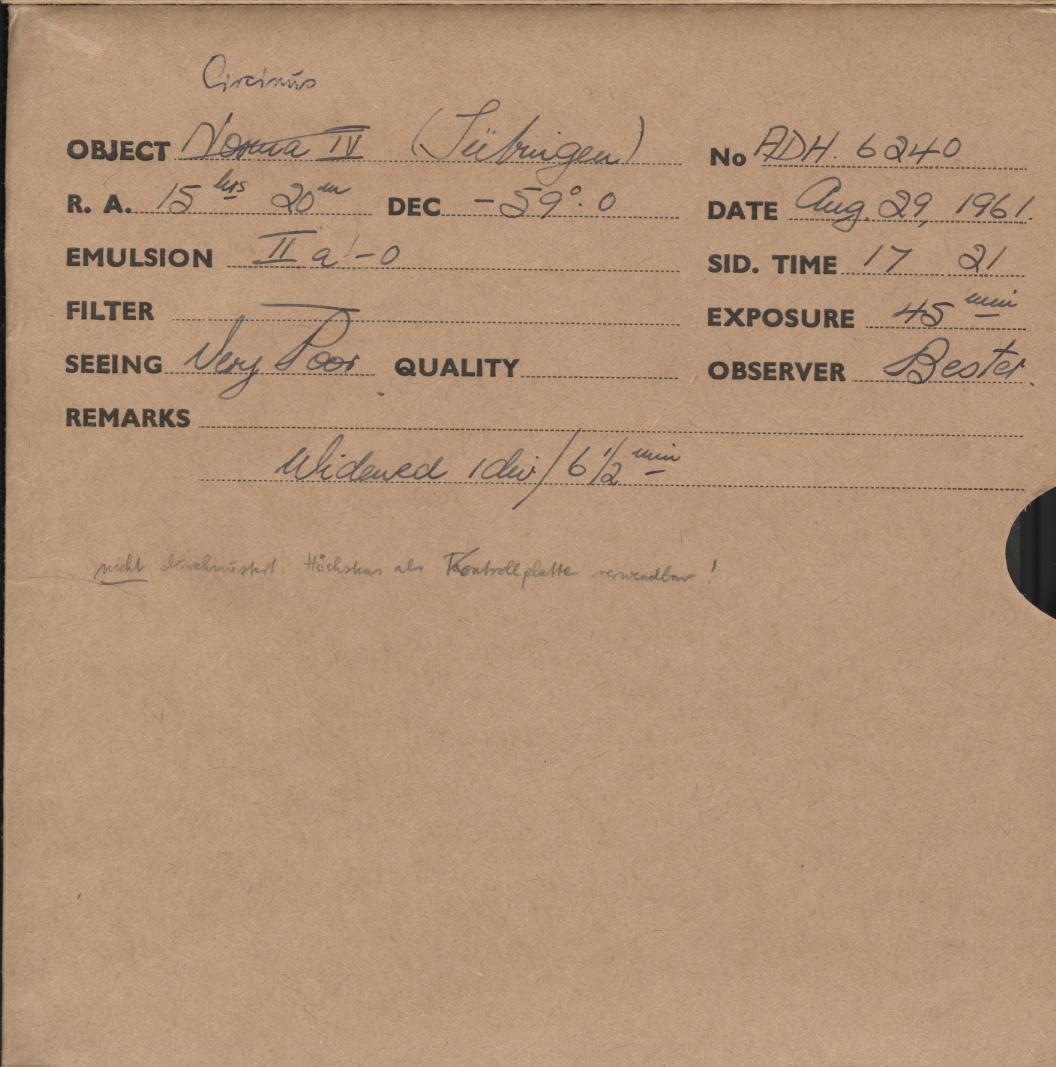 Circinus
OBJECT Norma IV (Tübingen) No ADH. 6240
R. A. 15 hrs 20 m DEC -59°.0 DATE Aug. 29, 1961.
EMULSION II a'-O SID. TIME 17 21
FILTER — EXPOSURE 45 min
SEEING Very Poor QUALITY OBSERVER Bester.
REMARKS
Widened 1 div/6 1/2 min
nicht durchmustert. Höchstens als Kontrollplatte verwendbar!